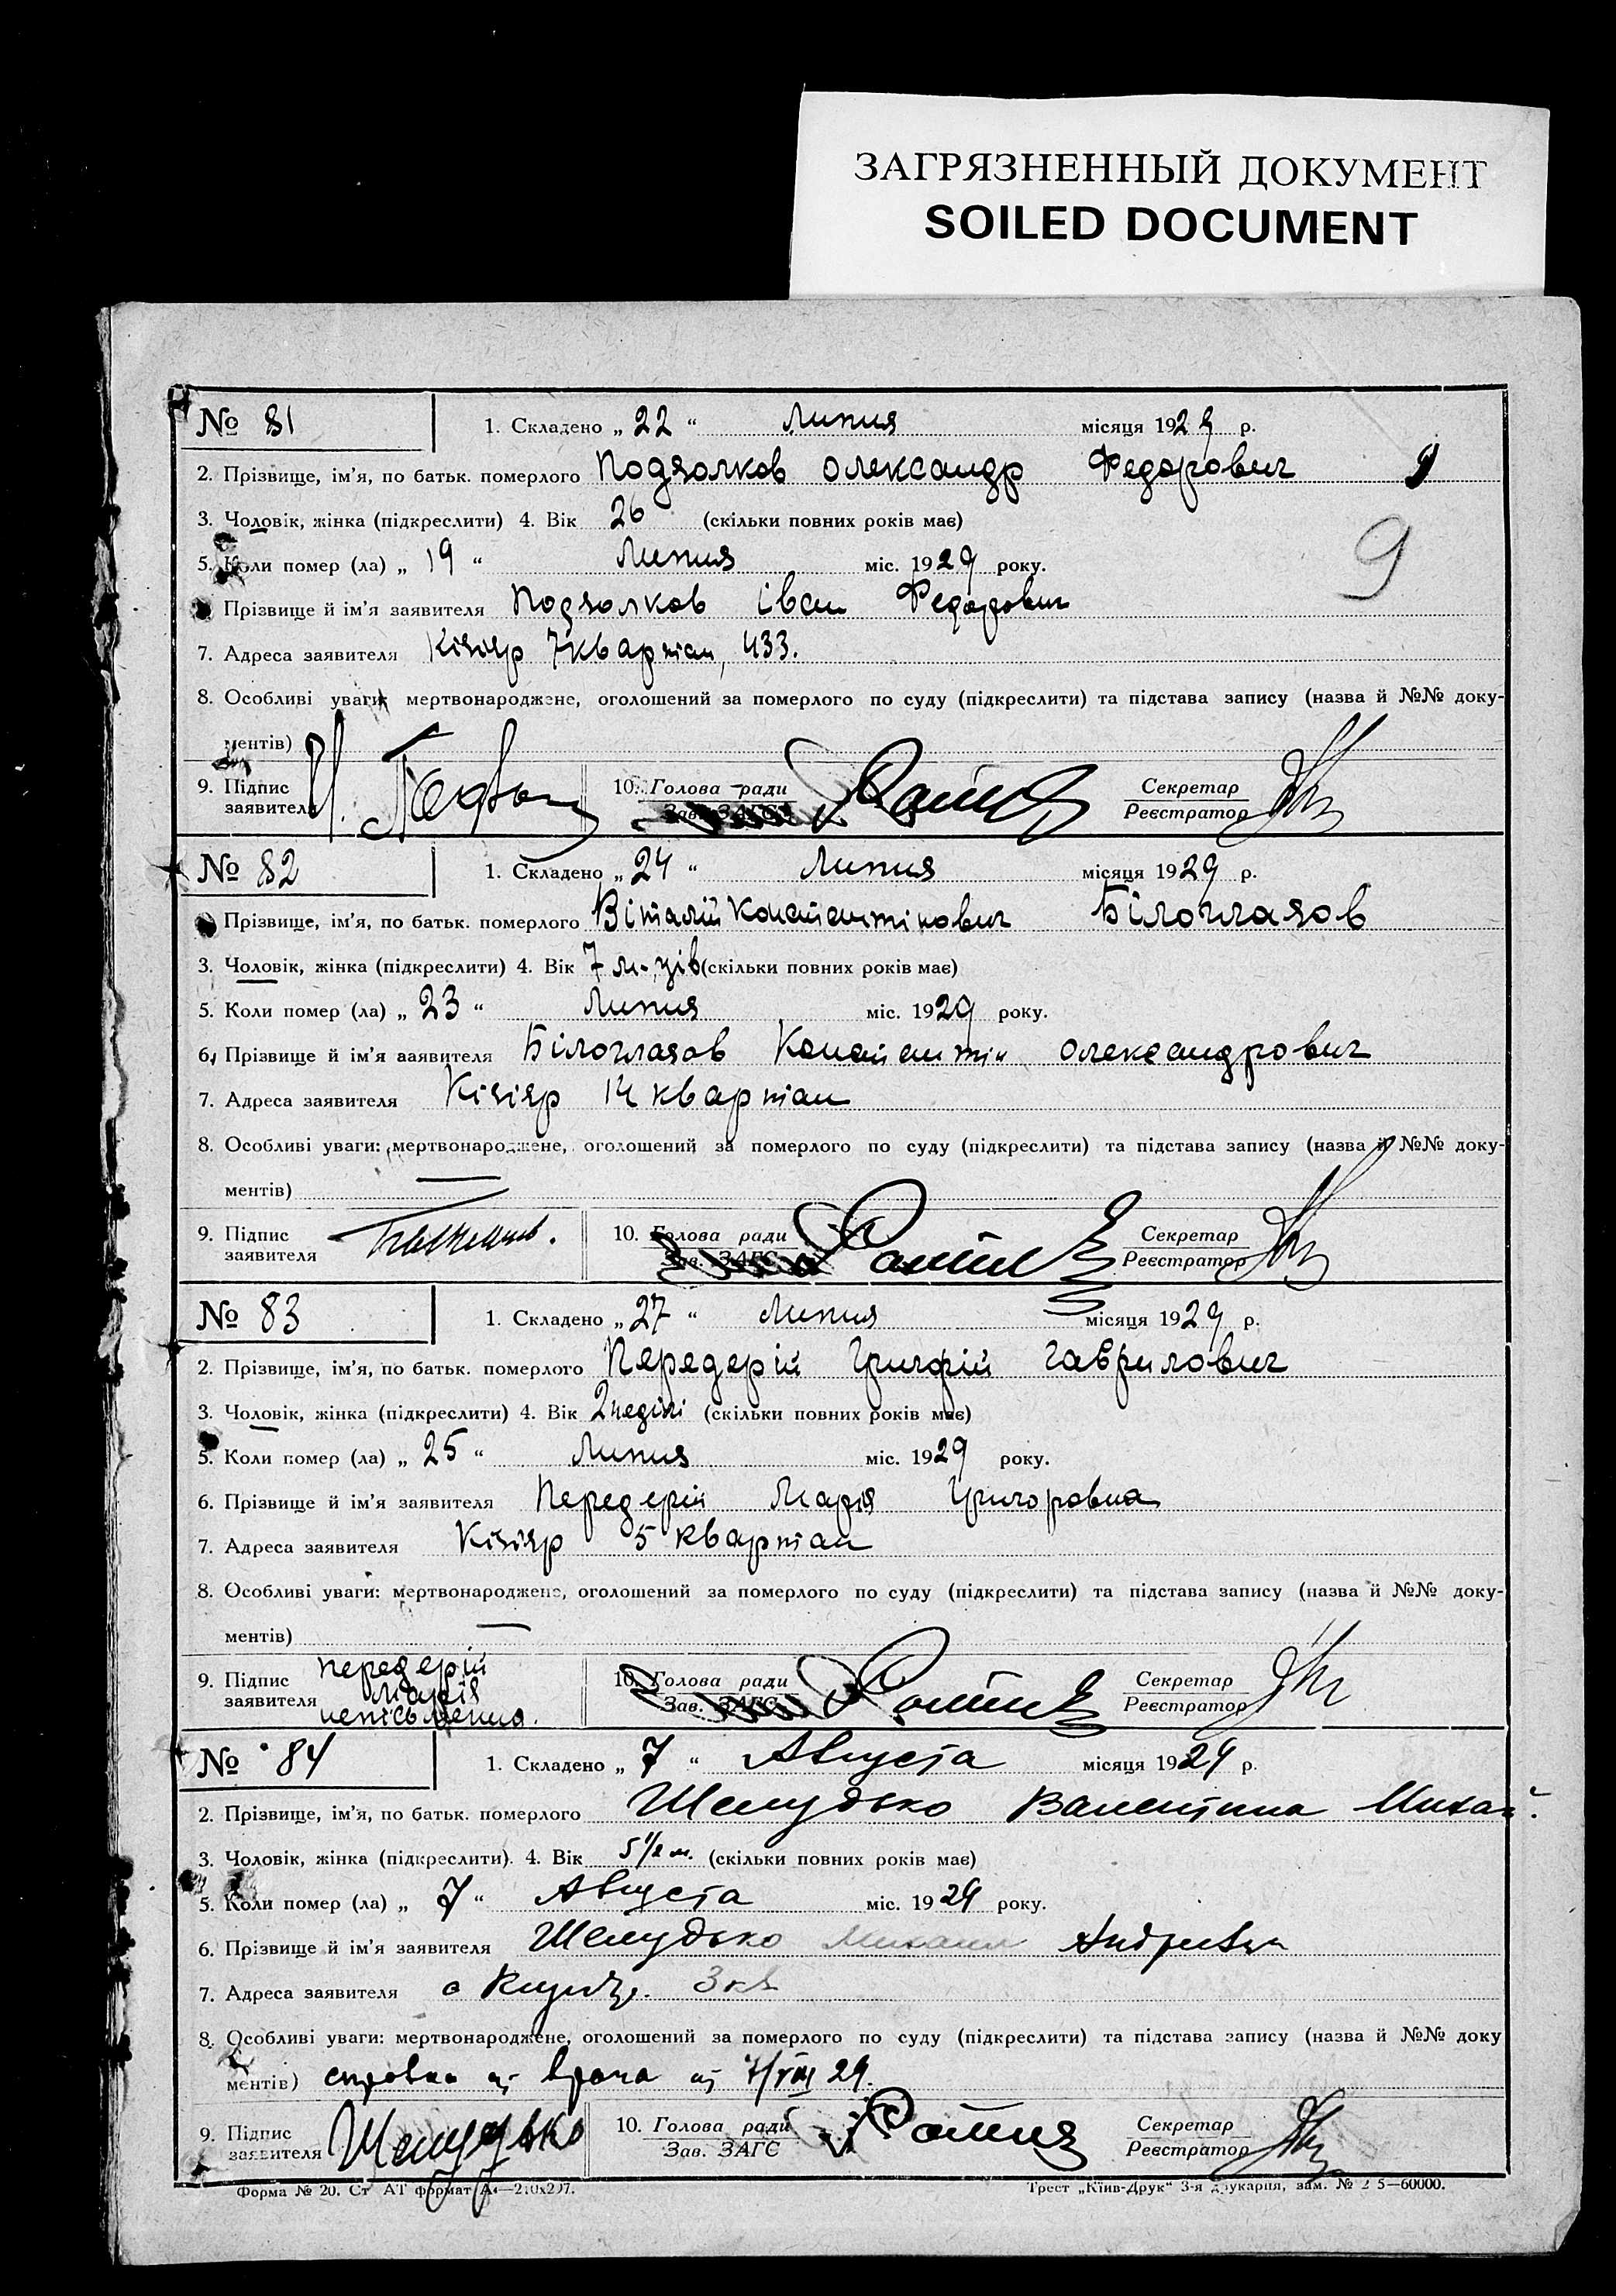 ЗАГРЯЗНЕННЫЙ ДОКУМЕНТ
SOILED DOCUMENT
№ 81 1. Складено „ 22 “ Липня місяця 1929 р.
2. Прізвище, ім’я, по батьк. померлого Подзолков Олександр Федорович 9
3. Чоловік, жінка (підкреслити) 4. Вік 26 (скільки повних років має)
9
5. Коли помер (ла) „ 19 “ Липня міс. 1929 року.
Прізвище й ім’я заявителя Подзолков Іван Федорович
7. Адреса заявителя Кізіяр 7 квартал, 433.
8. Особливі уваги: мертвонароджене, оголошений за померлого по суду (підкреслити) та підстава запису (назва й №№ доку-
ментів)
9. Підпис заявителя 10. Голова ради Зав. ЗАГС Секретар Реєстратор
№ 82 1. Складено „ 24 “ Липня місяця 1929 р.
Прізвище, ім’я, по батьк. померлого Віталій Константінович Білоглазов
3. Чоловік, жінка (підкреслити) 4. Вік 7 м-ців (скільки повних років має)
5. Коли помер (ла) „ 23 “ Липня міс. 1929 року.
6. Прізвище й ім’я заявителя Білоглазов Константін Олександрович
7. Адреса заявителя Кізіяр 14 квартал
8. Особливі уваги: мертвонароджене, оголошений за померлого по суду (підкреслити) та підстава запису (назва й №№ доку-
ментів) —
9. Підпис заявителя 10. Голова ради Зав. ЗАГС Секретар Реєстратор
№ 83 1. Складено „ 27 “ Липня місяця 1929 р.
2. Прізвище, ім’я, по батьк. померлого Передерій Гаврилович
3. Чоловік, жінка (підкреслити) 4. Вік 2 неділі (скільки повних років має)
5. Коли помер (ла) „ 25 “ Липня міс. 1929 року.
6. Прізвище й ім’я заявителя Передерій Марія Григоровна
7. Адреса заявителя Кізіяр 5 квартал
8. Особливі уваги: мертвонароджене, оголошений за померлого по суду (підкреслити) та підстава запису (назва й №№ доку-
ментів) —
9. Підпис заявителя Передерій Марія неписьменна. 10. Голова ради Зав. ЗАГС Секретар Реєстратор
№ 84 1. Складено „ 7 “ Августа місяця 1929 р.
2. Прізвище, ім’я, по батьк. померлого Шелудько Валентина Михай.
3. Чоловік, жінка (підкреслити). 4. Вік 5 1/2 м. (скільки повних років має)
5. Коли помер (ла) „ 7 “ Августа міс. 1929 року.
6. Прізвище й ім’я заявителя Шелудько Михаил
7. Адреса заявителя с 3 кв
8. Особливі уваги: мертвонароджене, оголошений за померлого по суду (підкреслити) та підстава запису (назва й №№ доку
ментів) врача 7/VIII 29.
9. Підпис заявителя Шелудько 10. Голова ради Зав. ЗАГС Секретар Реєстратор
Форма № 20. Ст АТ формат А4—210x297. Трест „Київ-Друк“ 3-я друкарня, зам. №